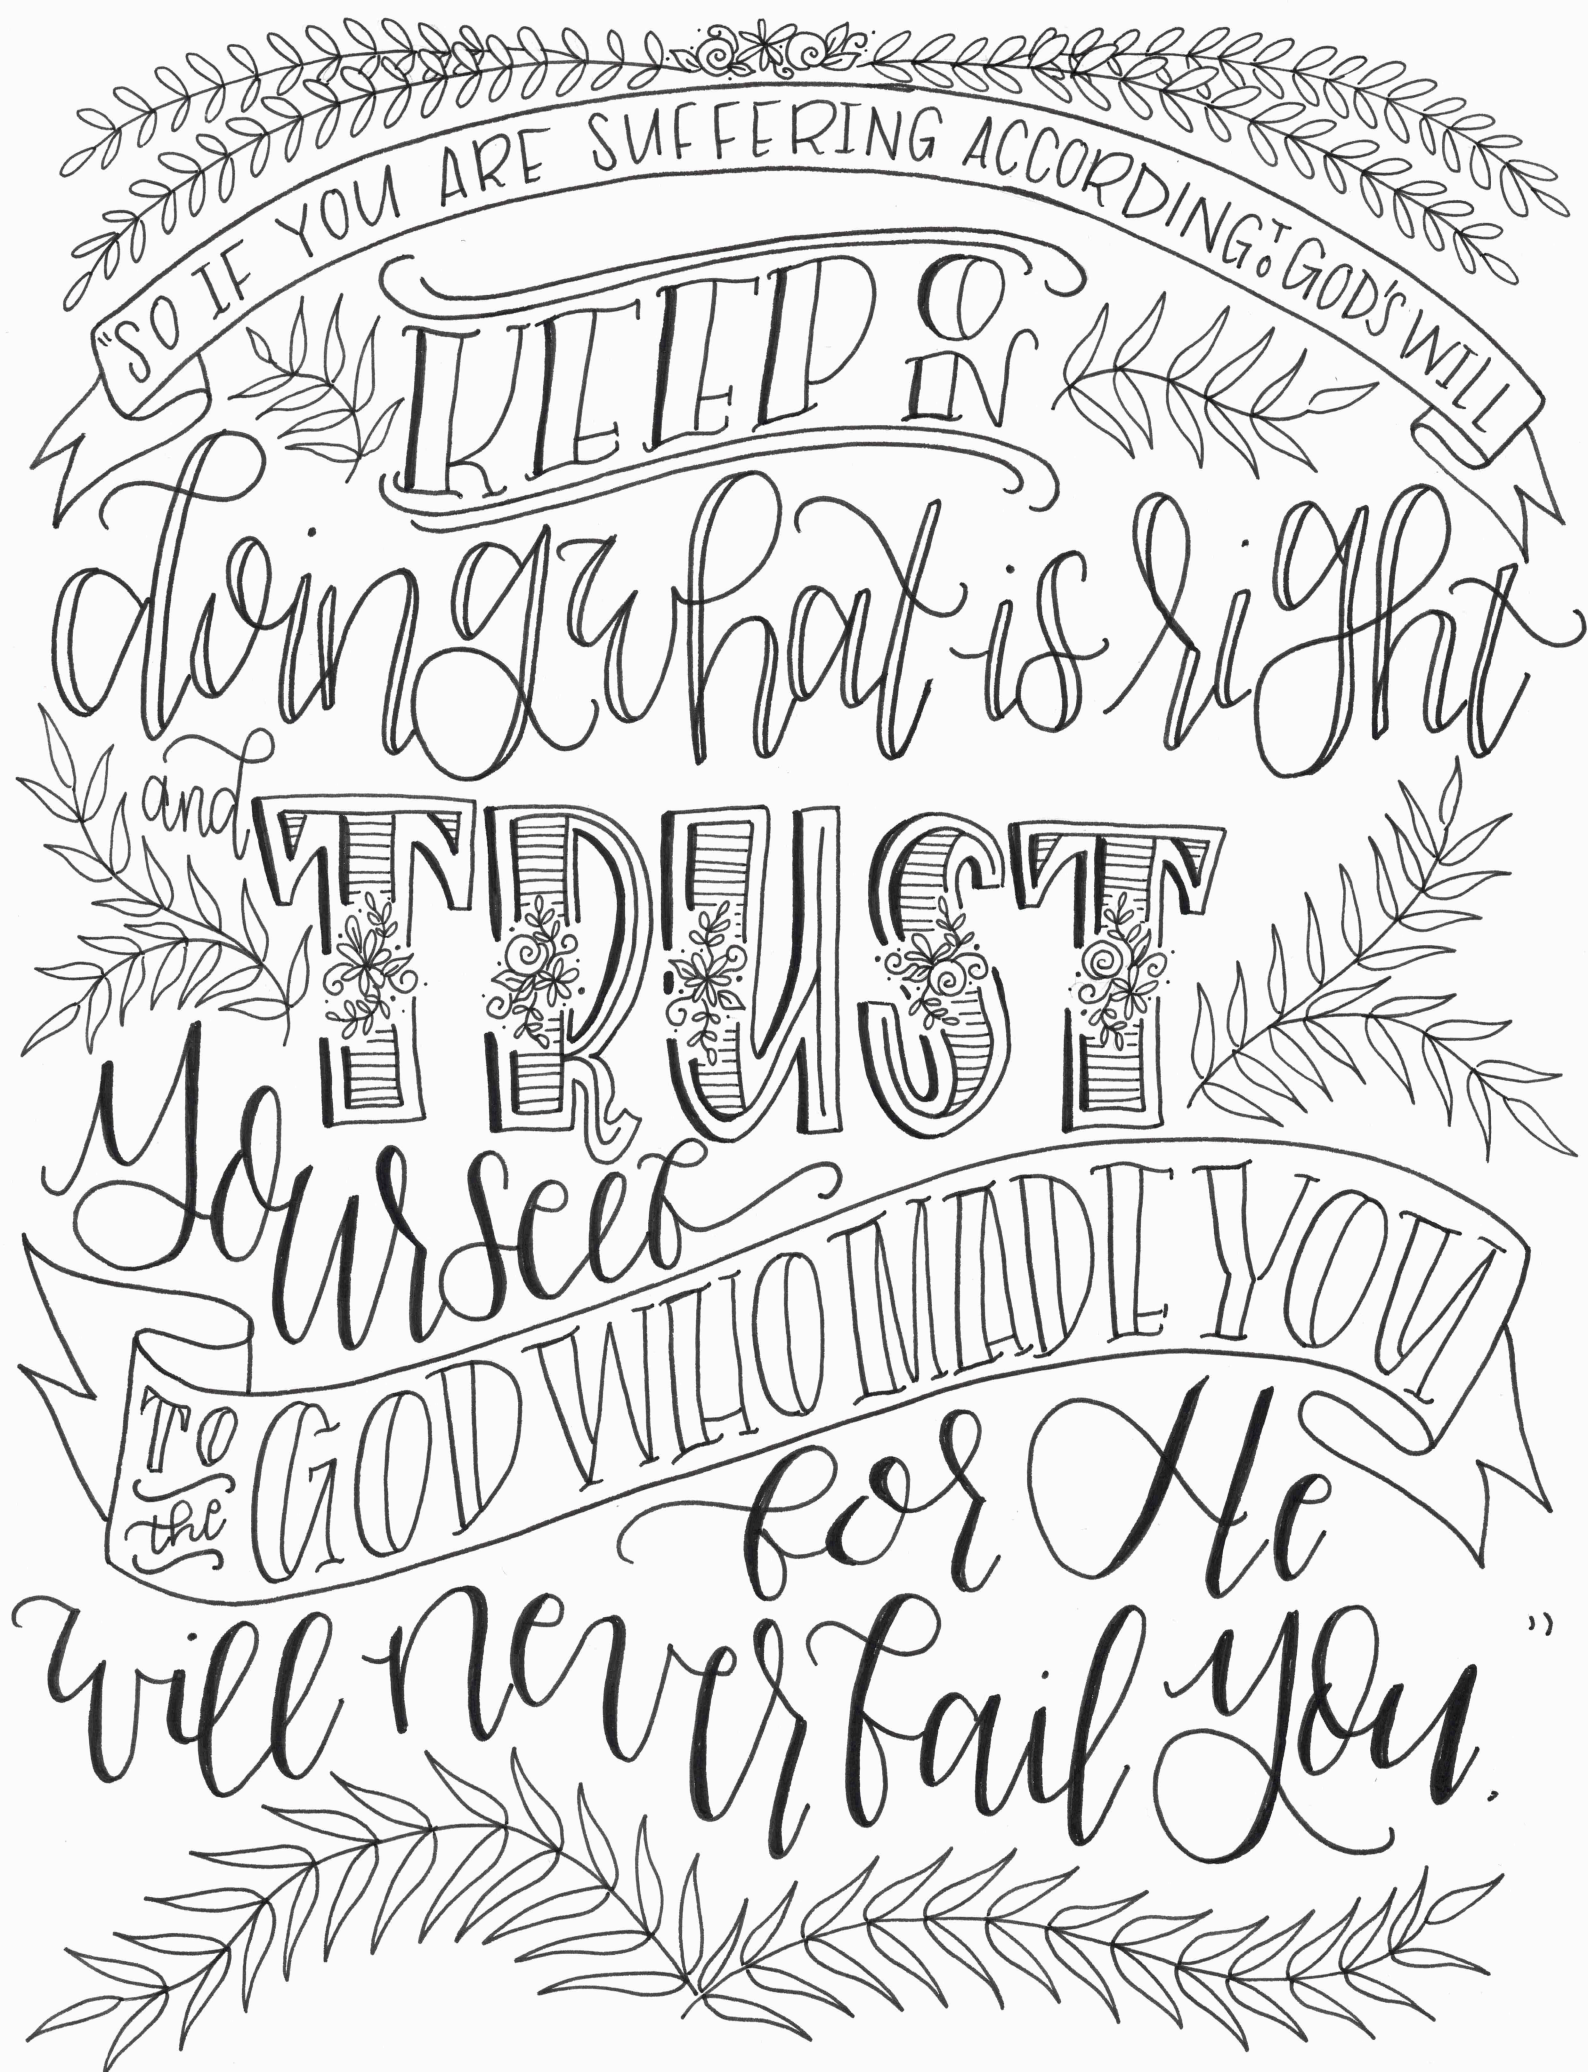 "SO IF YOU ARE SUFFERING ACCORDING TO GOD'S WILL
KEEP ON
doing what is right
and TRUST
Yourself
TO the GOD WHO MADE YOU
for He
will never fail you."